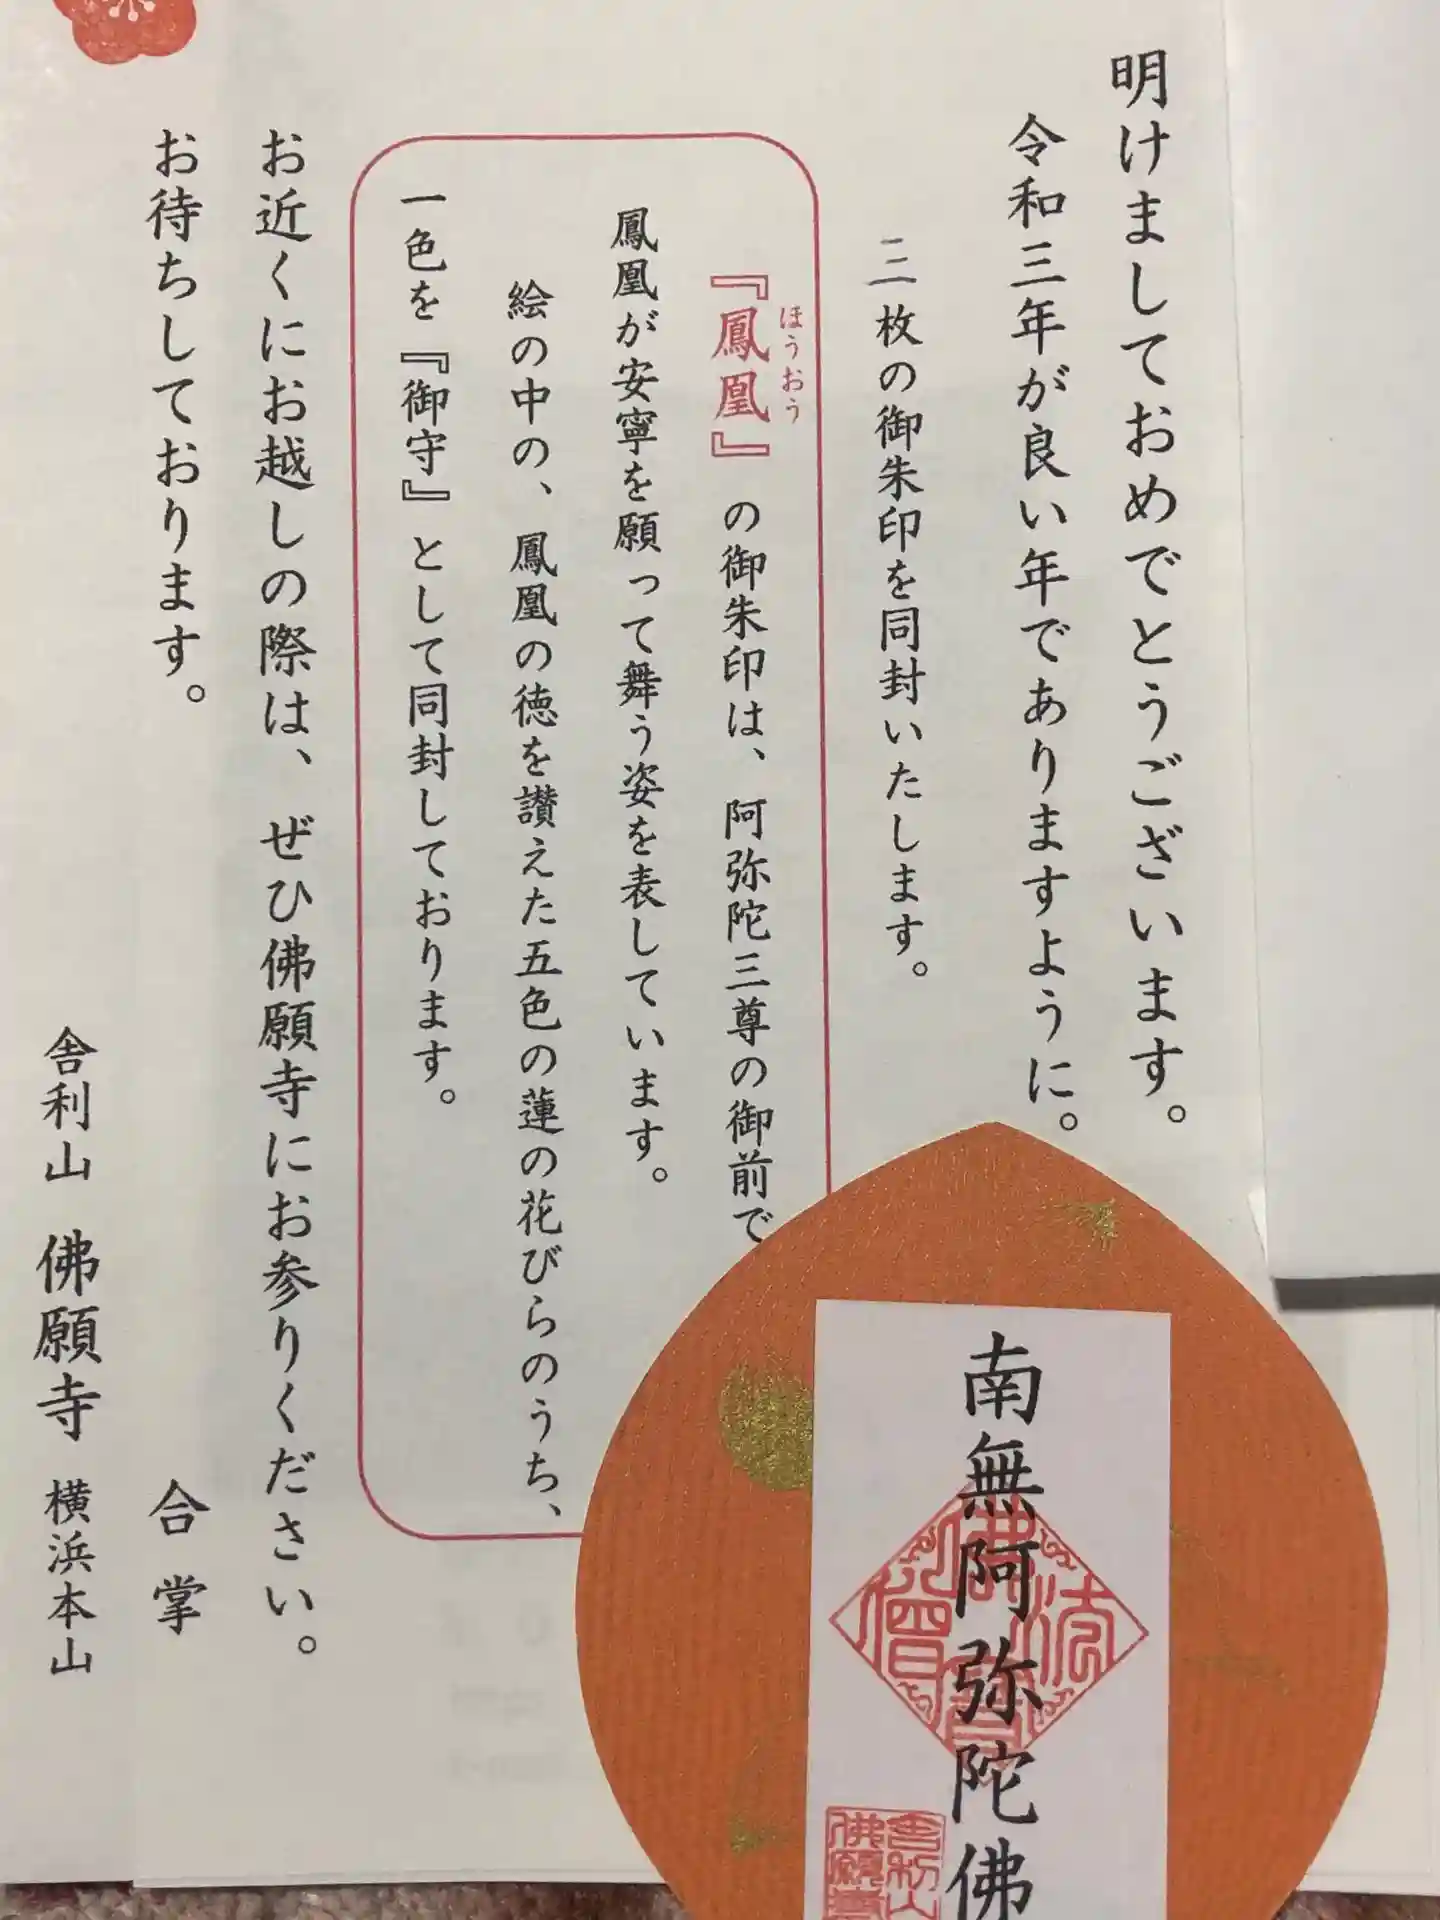 明けましておめでとうございます。
令和三年が良い年でありますように。
三枚の御朱印を同封いたします。
ほうおう
『鳳凰』の御朱印は、阿弥陀三尊の御前で
鳳凰が安寧を願って舞う姿を表しています。
絵の中の、鳳凰の徳を讃えた五色の蓮の花びらのうち、
一色を『御守』として同封しております。
お近くにお越しの際は、ぜひ佛願寺にお参りください。
お待ちしております。
合掌
舎利山 佛願寺 横浜本山
南無阿弥陀佛
佛法僧寳
舎利山
佛願寺